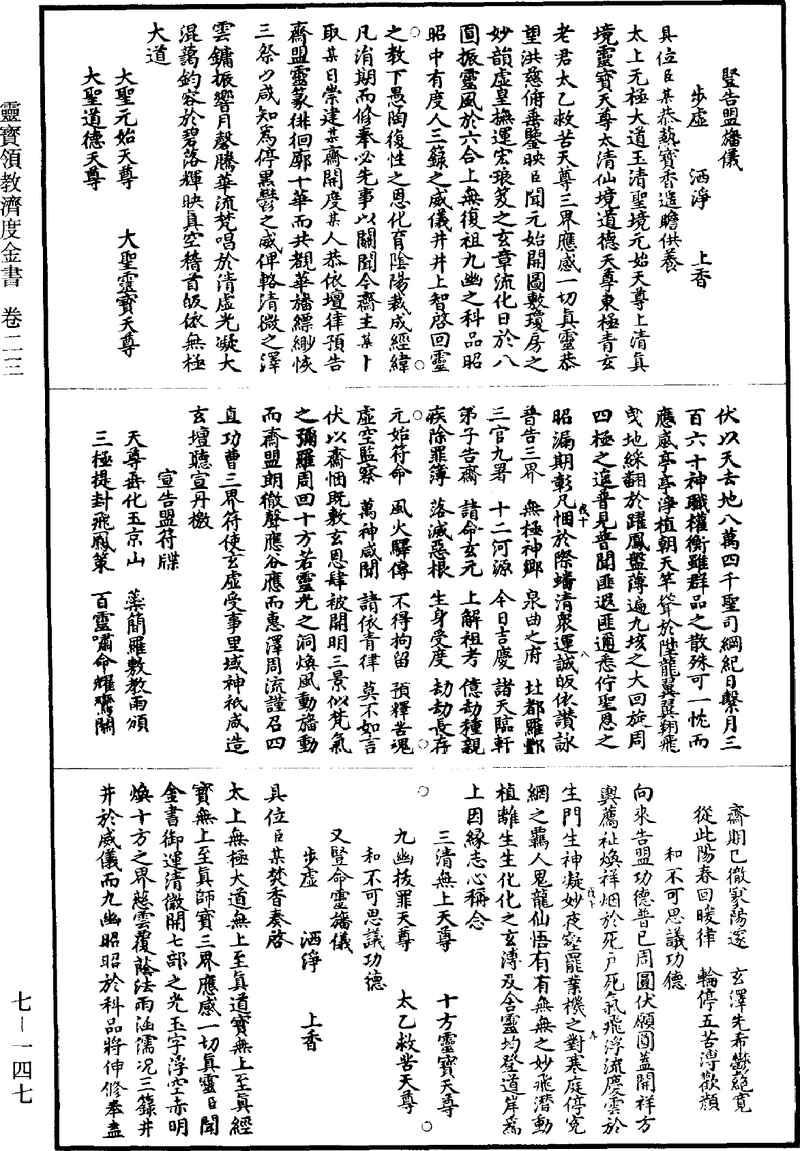 豎告盟旛儀
步虛　洒淨　上香
具位臣某恭熱寶香遙瞻供養
太上元極大道玉清聖境元始天尊上清真
境靈寶天尊太清仙境道德天尊東極青玄
老君太乙救苦天尊三界應感一切真靈恭
望洪慈俯垂鑒映臣聞元始開圖敷瓊房之
妙韻虛皇撫運宏琅笈之玄章流化日於八
圓振靈風於六合上無復祖九幽之科品昭
昭中有度人三籙之威儀井井上智啓回靈
之教下愚陶復性之恩化育陰陽裁成經緯
凡涓期而修奉必先事以關聞今齋主某卜
取某日崇建某齋開度某人恭依壇律預告
齋盟靈篆徘徊廓十華而共觀華旛縹緲恢
三祭以咸知為停黑鬱之威俾輅清微之澤
雲鏞振響月磬騰華流梵唱於清虛光凝大
混藹鈞容於碧落輝映真空稽首皈依無極
大道
大聖元始天尊　大聖靈寶天尊
大聖道德天尊
伏以天去地八萬四千聖司綱紀日繫月三
百六十神職權衡雖群品之散殊可一忱而
應感亭亭淨植朝天竿聳於陞龍翼翼翔飛
曳地綵翻於躍鳳盤薄遍九垓之大回旋周
四極之遙普見普聞匪遐匪邇悉佇聖恩之
昭漏期彰凡悃於際蟠清衆運誠皈依讚詠
普告三界　無極神鄉　泉曲之府　北都羅酆
三官九署　十二河源　今日吉慶　諸天臨軒
弟子告齋　請命玄元　上解祖考　億劫種親
疾除罪簿　落滅惡根　生身受度　劫劫長存
元始符命　風火驛傳　不得拘留　預釋苦魂
虛空監察　萬神咸聞　請依青律　莫不如言
伏以齋悃既敷玄恩肆被開明三景似梵氣
之彌羅周回十方若靈光之洞煥風動旛動
而齋盟朗徹聲應谷應而惠澤周流謹召四
直功曹三界符使玄虛受事里域神祇咸造
玄壇聽宣丹檄
宣告盟符牒
天尊垂化玉京山　蘂簡羅敷教雨頒
三極提封飛鳳策　百靈嘯命耀鸞關
齋期已徹冡陽邃　玄澤先希鬱絕寬
從此陽春回暖律　輪停五苦溥歡顏
和不可思議功德
向來告盟功德普已周圓伏願圓蓋開祥方
輿薦祉煥祥烟於死戶死氣飛浮流慶雲於
生門生神凝妙夜壑罷業機之對寒庭停宄
網之羈人鬼龍仙悟有有無無之妙飛潛動
植離生生化化之玄溥及含靈均登道岸爲
上因緣志心稱念
三清無上天尊　十方靈寶天尊
九幽拔罪天尊　太乙救苦天尊
和不可思議功德
又豎命靈旛儀
步虛　洒淨　上香
具位臣某焚香奏啓
太上無極大道無上至真道寶無上至真經
寶無上至真師寶三界應感一切真靈臣聞
金書御運清微開七部之光玉字浮空赤明
煥十方之界慈雲覆蔭法雨涵濡况三籙井
井於威儀而九幽昭昭於科品將伸修奉盍
靈寶領教濟度金書　卷二三
七—一四七